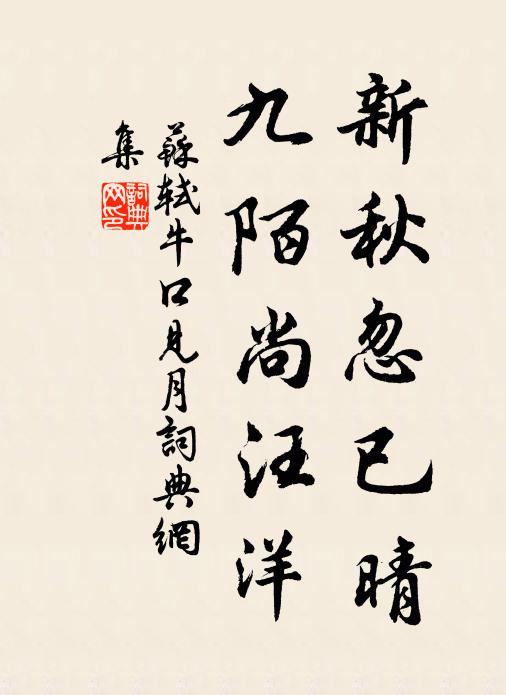 新秋忽已晴
九陌尚汪洋
蘇軾牛口見月詞典網
集
詞典
网印